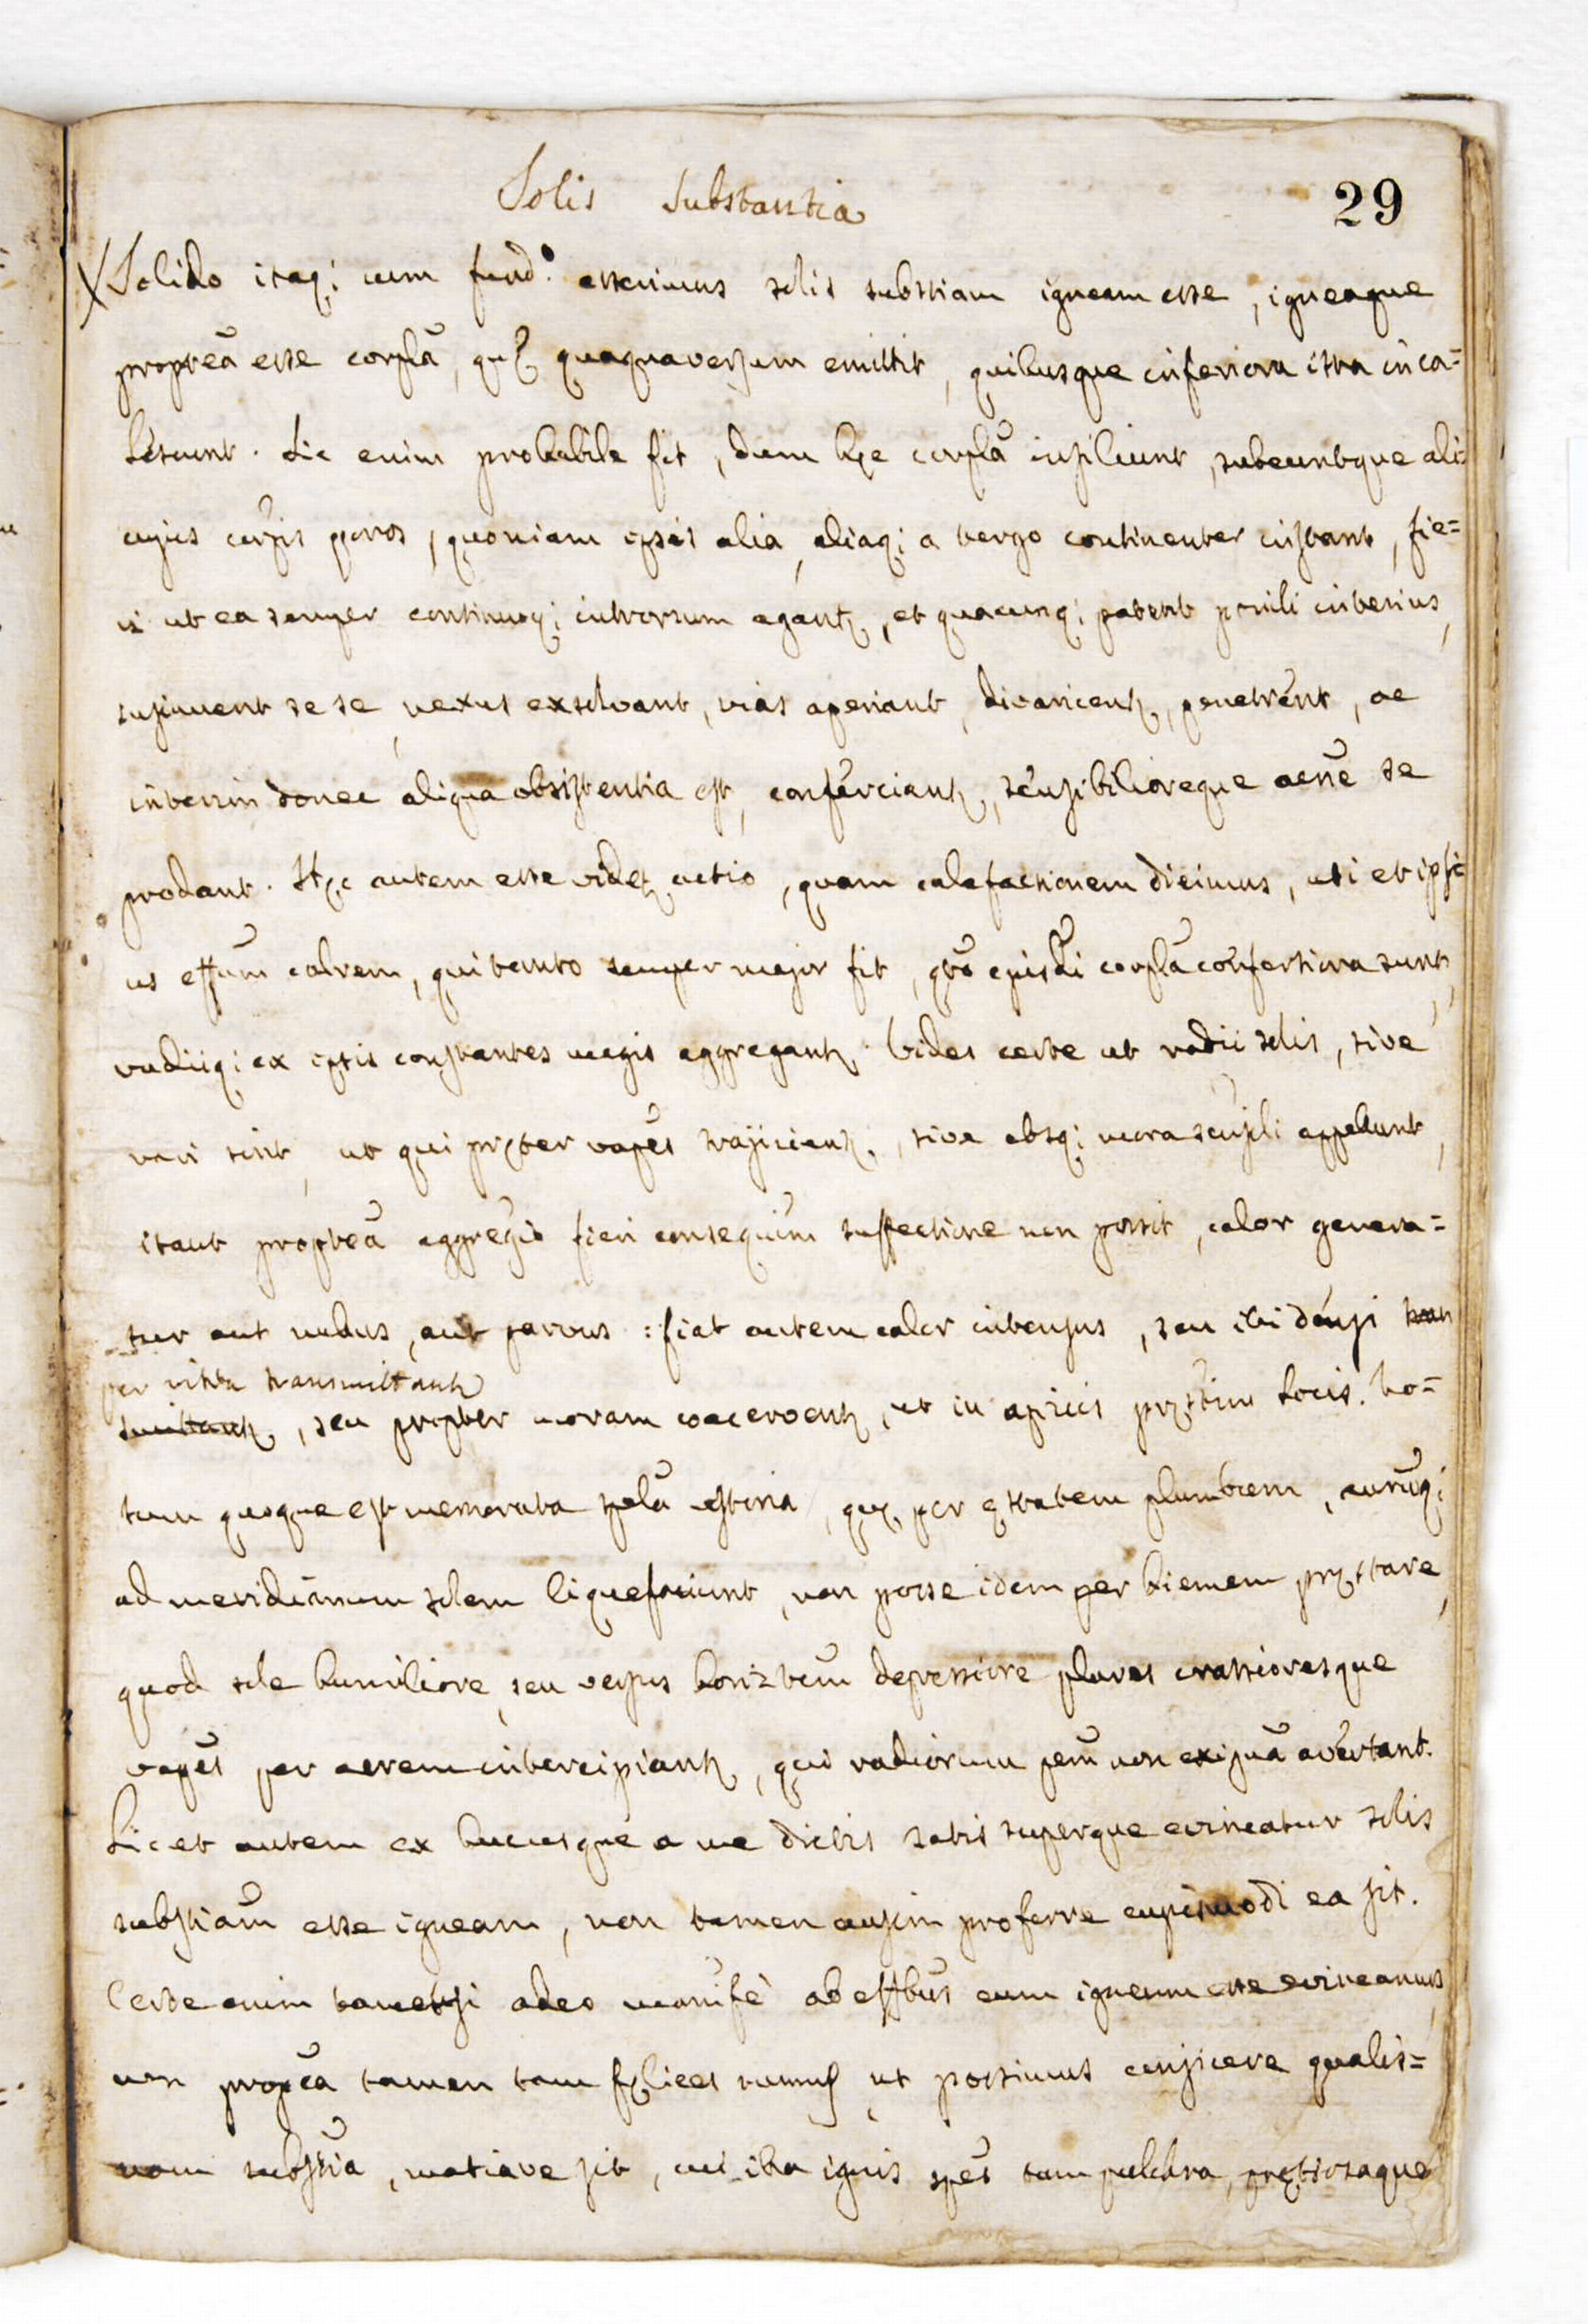 Solis Substantia
29
Solido itaq; cum fund.º asserimus solis substtiam igneam esse, igneaque
proptreã esse corplã, quę quaquaversum emittit, quibusque inferiora ista inca=
lescunt. Sic enim probabile fit, dum hęc corplã insiliunt, subeuntque ali
cujus corpis poros, quoniam ipsis alia, aliaq; a tergo continenter instant, fie=
ri ut ea semper continuoq; introrsum agantʒ, et quacunq; patent poruli interius,
insinuent se se, nexus exsolvant, vias aperiant, divaricentʒ, penetrent, ac
interim donec aliqua obsistentia est, conferciantʒ, sensibilioreque acñe se
prodant. Hęc autem esse videtʒ actio, quam calefactionem dicimus, uti et ipsi
us effum calorem, qui tanto semper major fit, qto ejusdi corplã confertiora sunt,
radiiq; ex ipsis constantes magis aggregantʒ. Vides certe ut radii solis, sive
rari sint, ut qui propter vapes trajiciuntʒ, sive absq; mora scupli appellunt,
itaut proptreã aggregio fieri consequum suffectione non possit, calor genera=
tur aut nullus, aut parvus: fiat autem calor intensus, seu ibi densi
per vitra transmittantʒ
, seu propter moram coacerventʒ, ut in apricis pręsertim locis. No=
tum quoque est memorata spela ustoria, quę per ęstatem plumbum, aurumq;
ad meridianum solem liquefaciunt, non posse idem per hiemem pręstare,
quod sole humiliore, seu versus horiztem depressiore plures crassioresque
vapes per aerem intercipiantʒ, qui radiorum pem non exiguã avertant.
Licet autem ex hucusque a me dictis satis superque evincatur solis
substiam esse igneam, non tamen ausim proferre cujusmodi ea sit.
Certe enim tametsi adeo manife ab effbus eum igneum esse evincamus,
non propea tamen tam fęlices sumus ut possimus conjicere qualis=
nam substia, matiave sit, cui ita ignis spes tam pulchra, pretiosaque